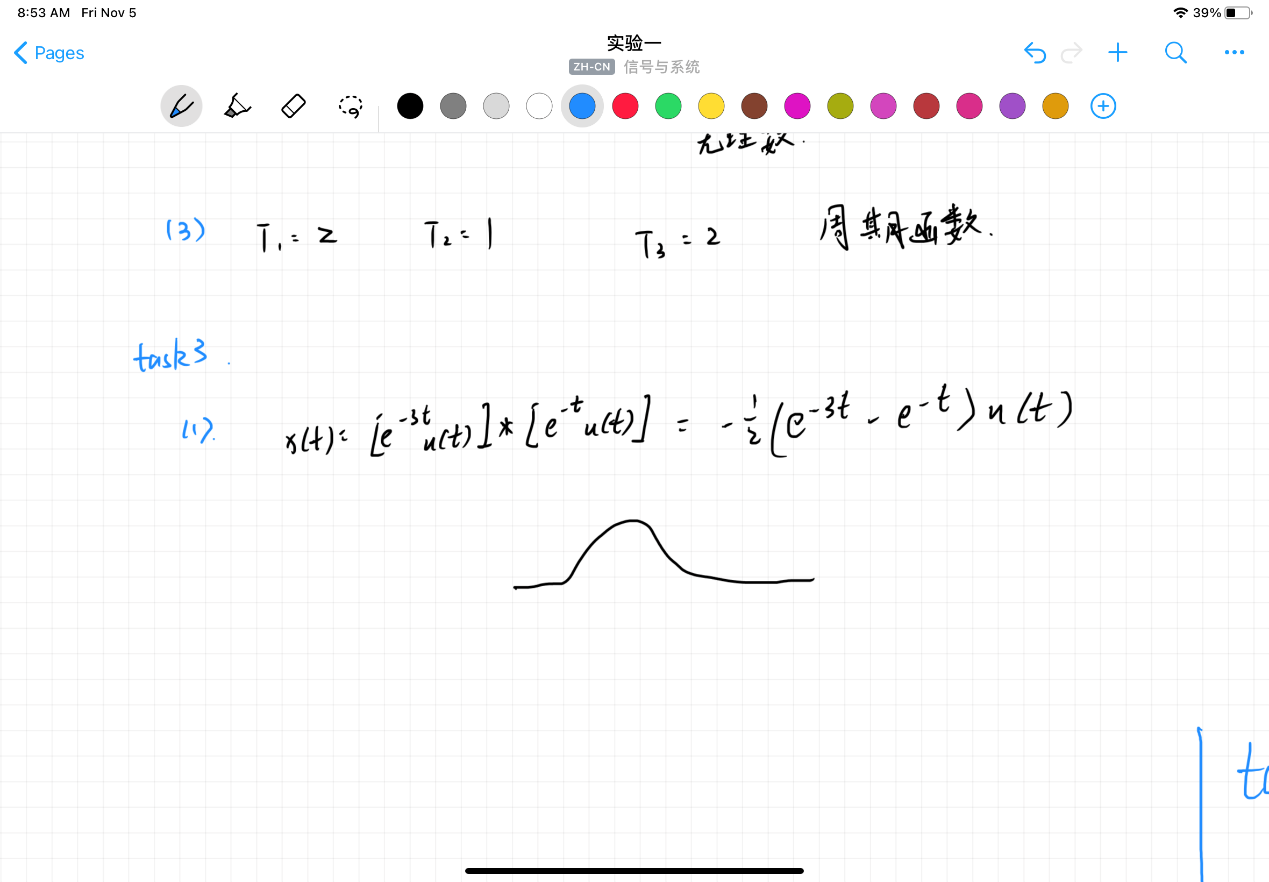 8:53 AM Fri Nov 5
39%
Pages
实验一
ZH-CN 信号与系统
无理数.
(3) T₁ = 2 T₂ = 1 T₃ = 2 周期函数.
task3.
(1). x(t) = [e^{-3t}u(t)] * [e^{-t}u(t)] = -1/2 (e^{-3t} - e^{-t}) u(t)